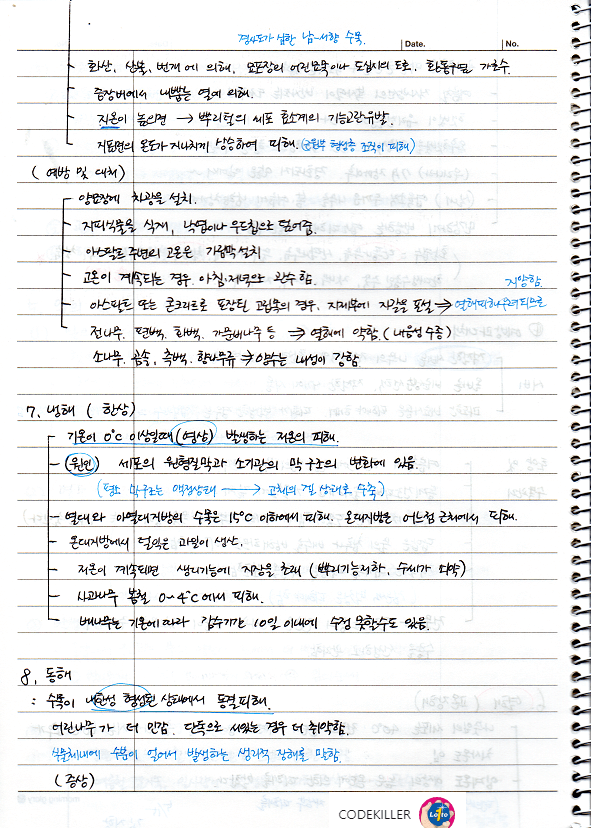 경사도가 심한 남~서향 수목.
Date. No.
화산, 산불, 번개에 의해, 묘포장의 어린묘목이나 도심지의 도로, 활동구면 가로수.
냉방장비에서 내뿜는 열에 의해.
지온이 높으면 → 뿌리털의 세포 효소계의 기능교란유발.
지표면의 온도가 지나치게 상승하여 피해. (근원부 형성층 조직이 피해)
(예방 및 대처)
양묘장에 차광을 설치.
지피식물을 식재, 낙엽이나 우드칩으로 덮어줌.
아스팔트 주변의 고온은 가림막 설치
고온이 계속되는 경우 아침·저녁으로 관수함.
지양함.
아스팔트 또는 콘크리트로 포장된 고립목의 경우, 지제부에 자갈을 포설 ⇒ 열해피해우려되므로
전나무, 편백, 화백, 가문비나무 등 ⇒ 열해에 약함. (내음성 수종)
소나무, 곰솔, 측백, 향나무류 ⇒ 양수는 내성이 강함.
7. 냉해 ( 항상)
기온이 0℃ 이상일때 (영상) 발생하는 저온의 피해.
(원인) 세포의 원형질막과 소기관의 막구조의 변화에 있음.
(평소 막구조는 액정상태 → 고체의 겔 상태로 수축)
열대와 아열대지방의 수목은 15℃ 이하에서 피해. 온대지방은 어느점 근처에서 피해.
온대지방에서 덜익은 과일이 생산.
저온이 계속되면 생리기능에 지장을 초래 (뿌리기능저하, 수세가 쇠약)
사과나무 봄철 0~4℃에서 피해.
배나무는 기온에 따라 감수기간 10일 이내에 수정 못할수도 있음.
8. 동해
: 수목이 내한성 형성된 상태에서 동결피해.
어린나무가 더 민감. 단독으로 서있는 경우 더 취약함.
식물체내에 수분이 얼어서 발생하는 생리적 장해를 말함.
(증상)
CODEKILLER Lotto